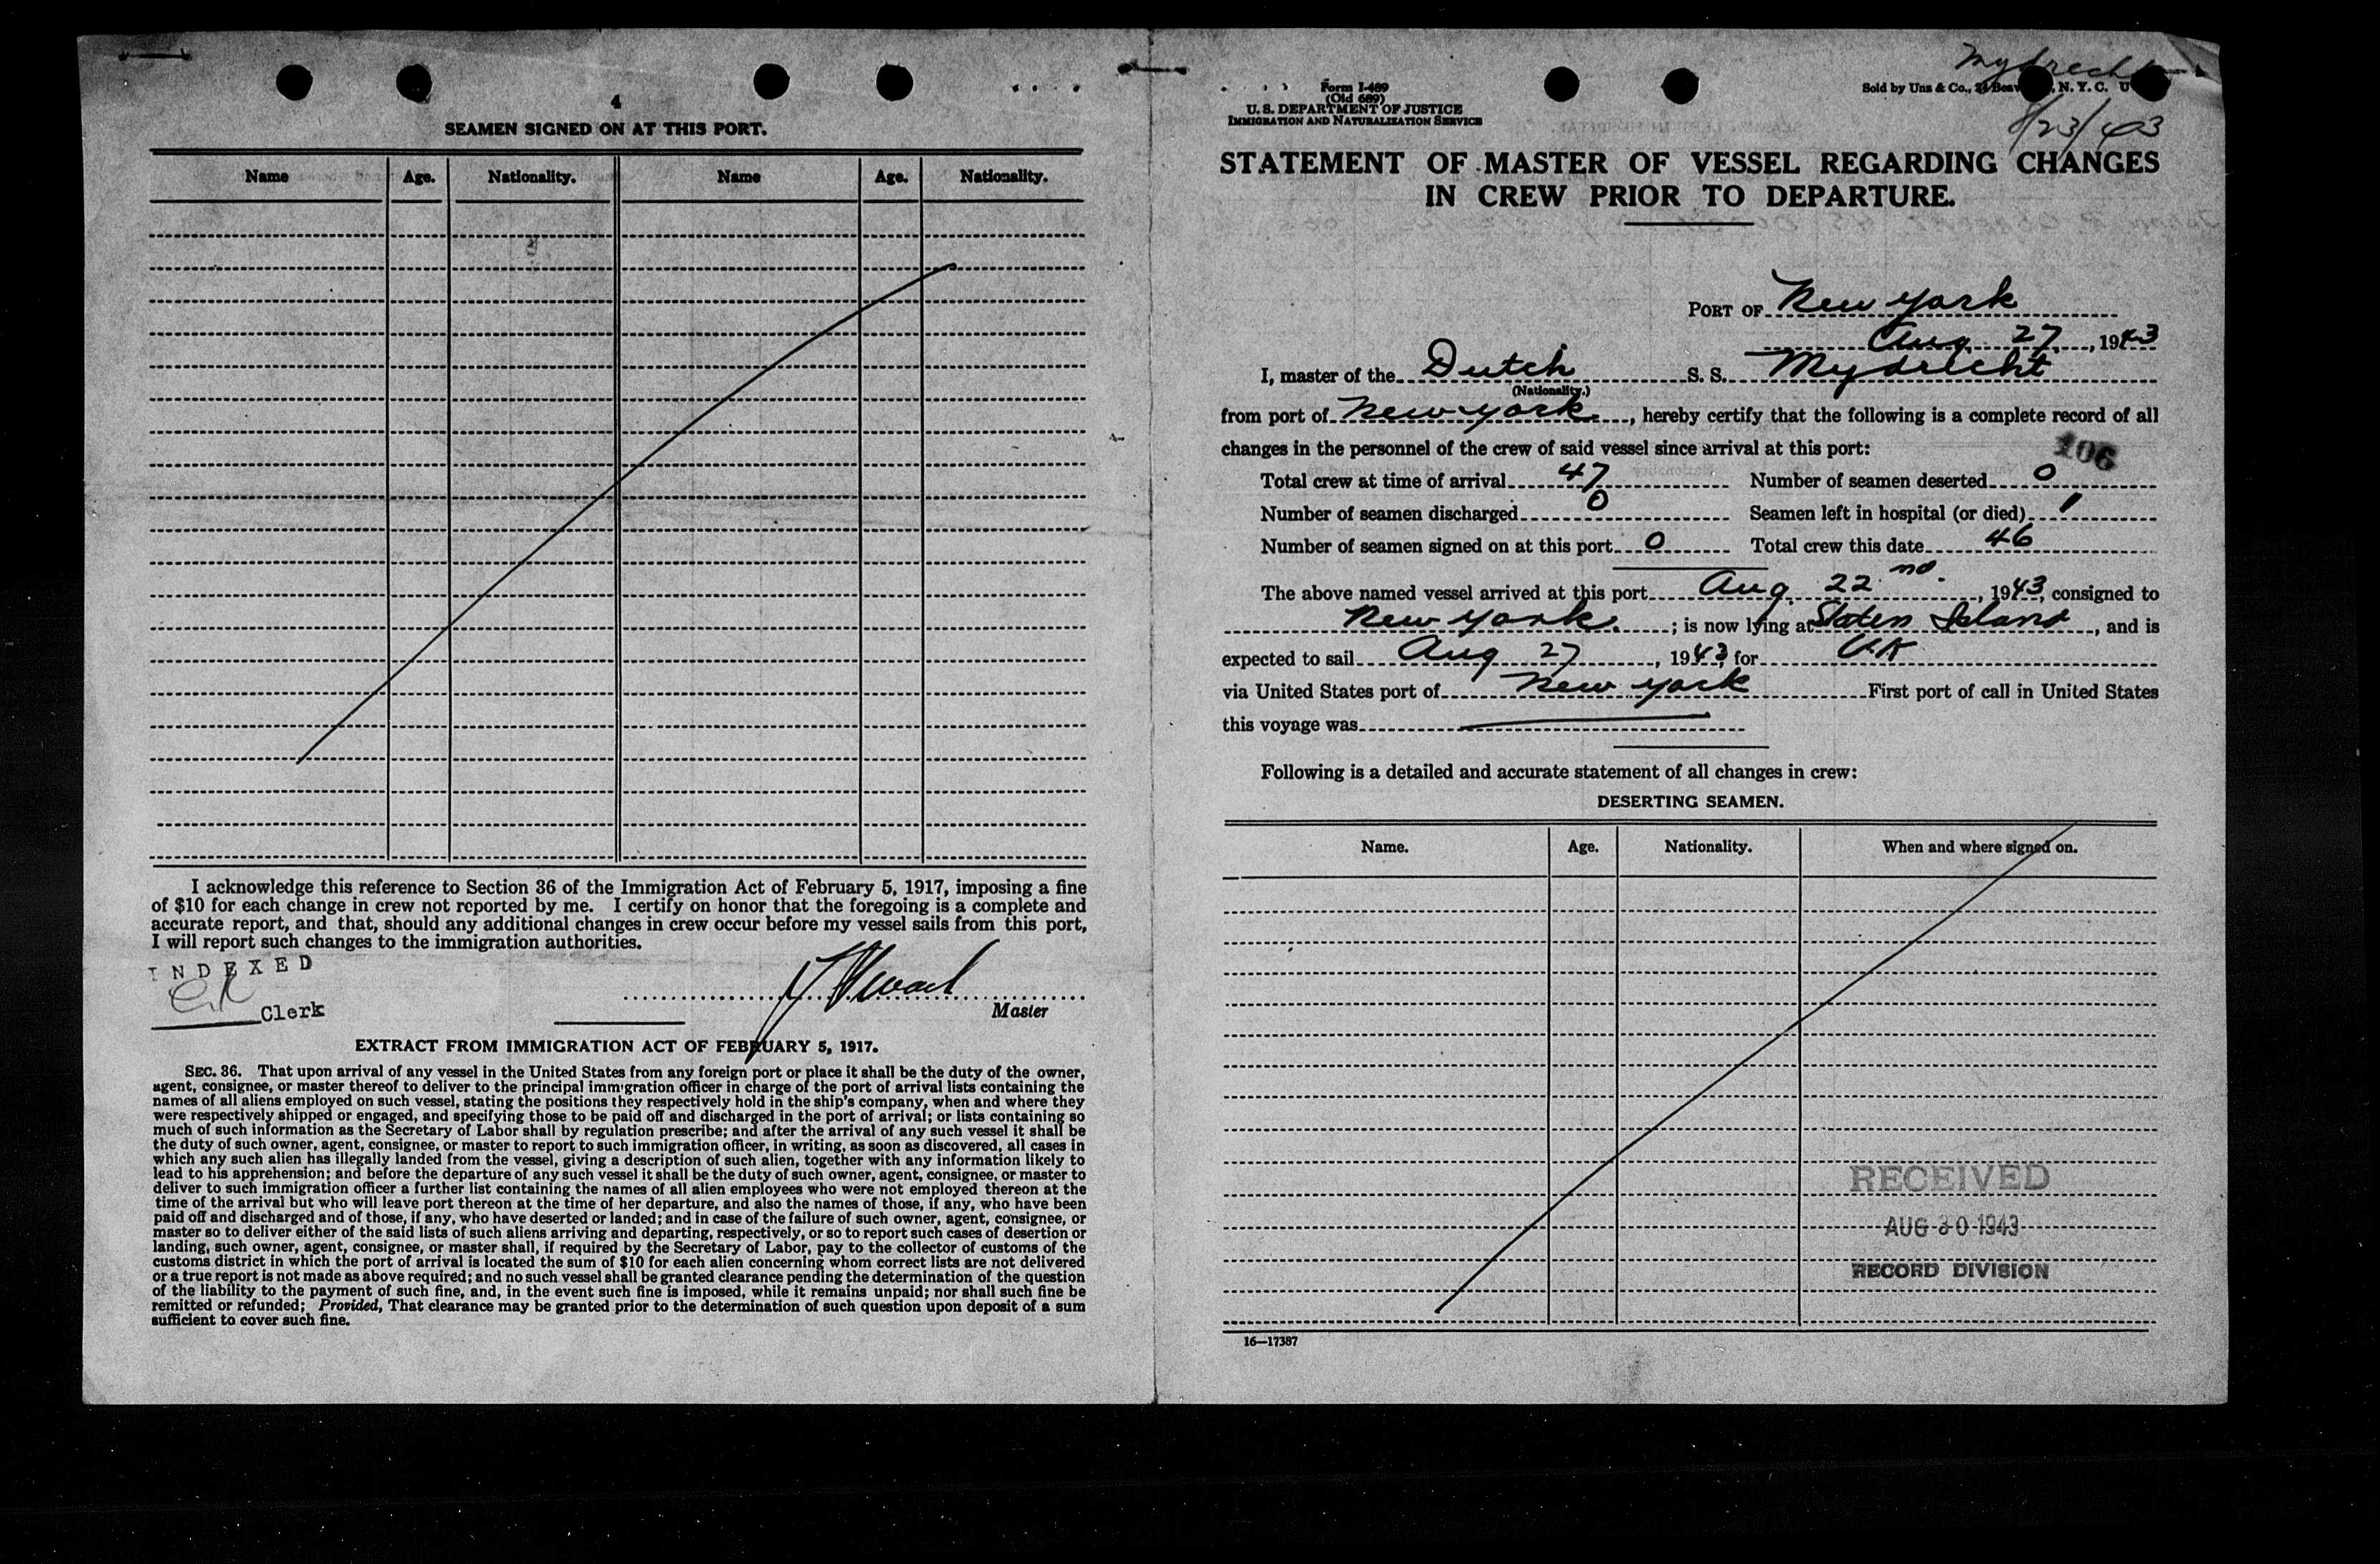 4
SEAMEN SIGNED ON AT THIS PORT.
Name Age. Nationality. Name Age. Nationality.
I acknowledge this reference to Section 36 of the Immigration Act of February 5, 1917, imposing a fine
of $10 for each change in crew not reported by me. I certify on honor that the foregoing is a complete and
accurate report, and that, should any additional changes in crew occur before my vessel sails from this port,
I will report such changes to the immigration authorities.
INDEXED
Clerk
Master
EXTRACT FROM IMMIGRATION ACT OF FEBRUARY 5, 1917.
SEC. 36. That upon arrival of any vessel in the United States from any foreign port or place it shall be the duty of the owner,
agent, consignee, or master thereof to deliver to the principal immigration officer in charge of the port of arrival lists containing the
names of all aliens employed on such vessel, stating the positions they respectively hold in the ship's company, when and where they
were respectively shipped or engaged, and specifying those to be paid off and discharged in the port of arrival; or lists containing so
much of such information as the Secretary of Labor shall by regulation prescribe; and after the arrival of any such vessel it shall be
the duty of such owner, agent, consignee, or master to report to such immigration officer, in writing, as soon as discovered, all cases in
which any such alien has illegally landed from the vessel, giving a description of such alien, together with any information likely to
lead to his apprehension; and before the departure of any such vessel it shall be the duty of such owner, agent, consignee, or master to
deliver to such immigration officer a further list containing the names of all alien employees who were not employed thereon at the
time of the arrival but who will leave port thereon at the time of her departure, and also the names of those, if any, who have been
paid off and discharged and of those, if any, who have deserted or landed; and in case of the failure of such owner, agent, consignee, or
master so to deliver either of the said lists of such aliens arriving and departing, respectively, or so to report such cases of desertion or
landing, such owner, agent, consignee, or master shall, if required by the Secretary of Labor, pay to the collector of customs of the
customs district in which the port of arrival is located the sum of $10 for each alien concerning whom correct lists are not delivered
or a true report is not made as above required; and no such vessel shall be granted clearance pending the determination of the question
of the liability to the payment of such fine, and, in the event such fine is imposed, while it remains unpaid; nor shall such fine be
remitted or refunded; Provided, That clearance may be granted prior to the determination of such question upon deposit of a sum
sufficient to cover such fine.
Mydrecht
Form I-489
(Old 689)
U. S. DEPARTMENT OF JUSTICE
IMMIGRATION AND NATURALIZATION SERVICE
Sold by Unz & Co., 24 Beav N. Y. C.
8/23/43
STATEMENT OF MASTER OF VESSEL REGARDING CHANGES
IN CREW PRIOR TO DEPARTURE.
PORT OF New York
Aug 27, 1943
I, master of the Dutch S. S. Mydrecht
(Nationality.)
from port of New York, hereby certify that the following is a complete record of all
changes in the personnel of the crew of said vessel since arrival at this port:
106
Total crew at time of arrival 47 Number of seamen deserted 0
Number of seamen discharged 0 Seamen left in hospital (or died) 1
Number of seamen signed on at this port 0 Total crew this date 46
The above named vessel arrived at this port Aug. 22nd., 1943, consigned to
New York.; is now lying at Staten Island, and is
expected to sail Aug 27, 1943, for U.K
via United States port of New York First port of call in United States
this voyage was
Following is a detailed and accurate statement of all changes in crew:
DESERTING SEAMEN.
Name. Age. Nationality. When and where signed on.
RECEIVED
AUG 30 1943
RECORD DIVISION
16—17387